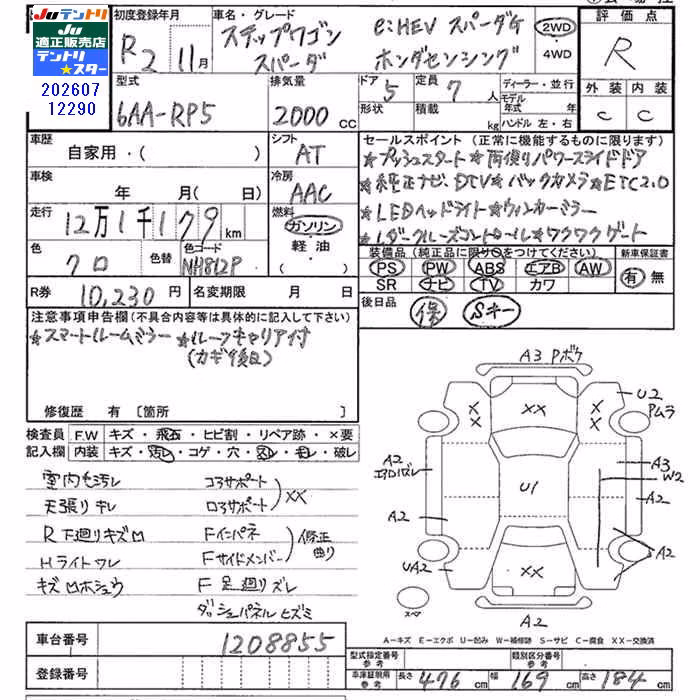 Juテントリ
Ju
適正販売店
テントリ
★スター
202607
12290
初度登録年月
R2 11月
車名・グレード
ステップワゴン e:HEV スパーダG
スパーダ ホンダセンシング
2WD
・4WD
評価点
R
外装 内装
C C
型式
6AA-RP5
排気量
2000 cc
ドア
5
形状
定員
7 人
積載
kg
ディーラー・並行
モデル年式 年式
ハンドル 左・右
車歴
自家用・( )
シフト
AT
車検
年 月(日)
冷房
AAC
走行
12万1千179 km
燃料
ガソリン
・軽油・
( )
色
クロ
色替
色コード
NH812P
R券 10,230 円
名変期限 月 日
セールスポイント(正常に機能するものに限ります)
★プッシュスタート ★両側パワースライドドア
★純正ナビ、DTV ★バックカメラ ★ETC2.0
★LEDヘッドライト ★ウィンカーミラー
★レダークルーズコントロール ★ワクワクゲート
装備品(純正品に限り○をつけてください)
PS PW ABS エアB AW
SR ナビ TV カワ
新車保証書
有 無
後日品
保 Sキー
注意事項申告欄(不具合内容等は具体的に記入して下さい)
★スマートルームミラー ★ルーフキャリア付
(カギ後日)
修復歴 有 [箇所 ]
検査員記入欄
F.W キズ・飛石・ヒビ割・リペア跡・×要
内装 キズ・汚レ・コゲ・穴・スレ・モレ・破レ
室内毛汚レ コアサポート
天張りキレ ロアサポート
XX
R下廻りキズM Fインパネ
Hライトワレ Fサイドメンバー
修正
曲り
キズMホシュウ F足廻りズレ
ダッシュパネルヒズミ
A3 Pボケ
U2
Pムラ
XX
A2
エアロバレ
A3
W2
A2
U1
A2
A2
UA2
XX
スペア
A2
A-キズ E-エクボ U-凹み W-補修跡 S-サビ C-腐食 XX-交換済
車台番号 1208855
登録番号
型式指定番号
参考
類別区分番号
参考
車庫証明用
参考
長さ 476 cm 幅 169 cm 高さ 184 cm